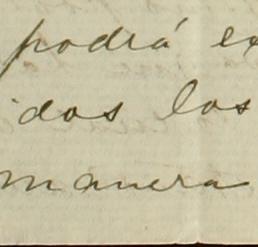 podrá ex
idos los
manera